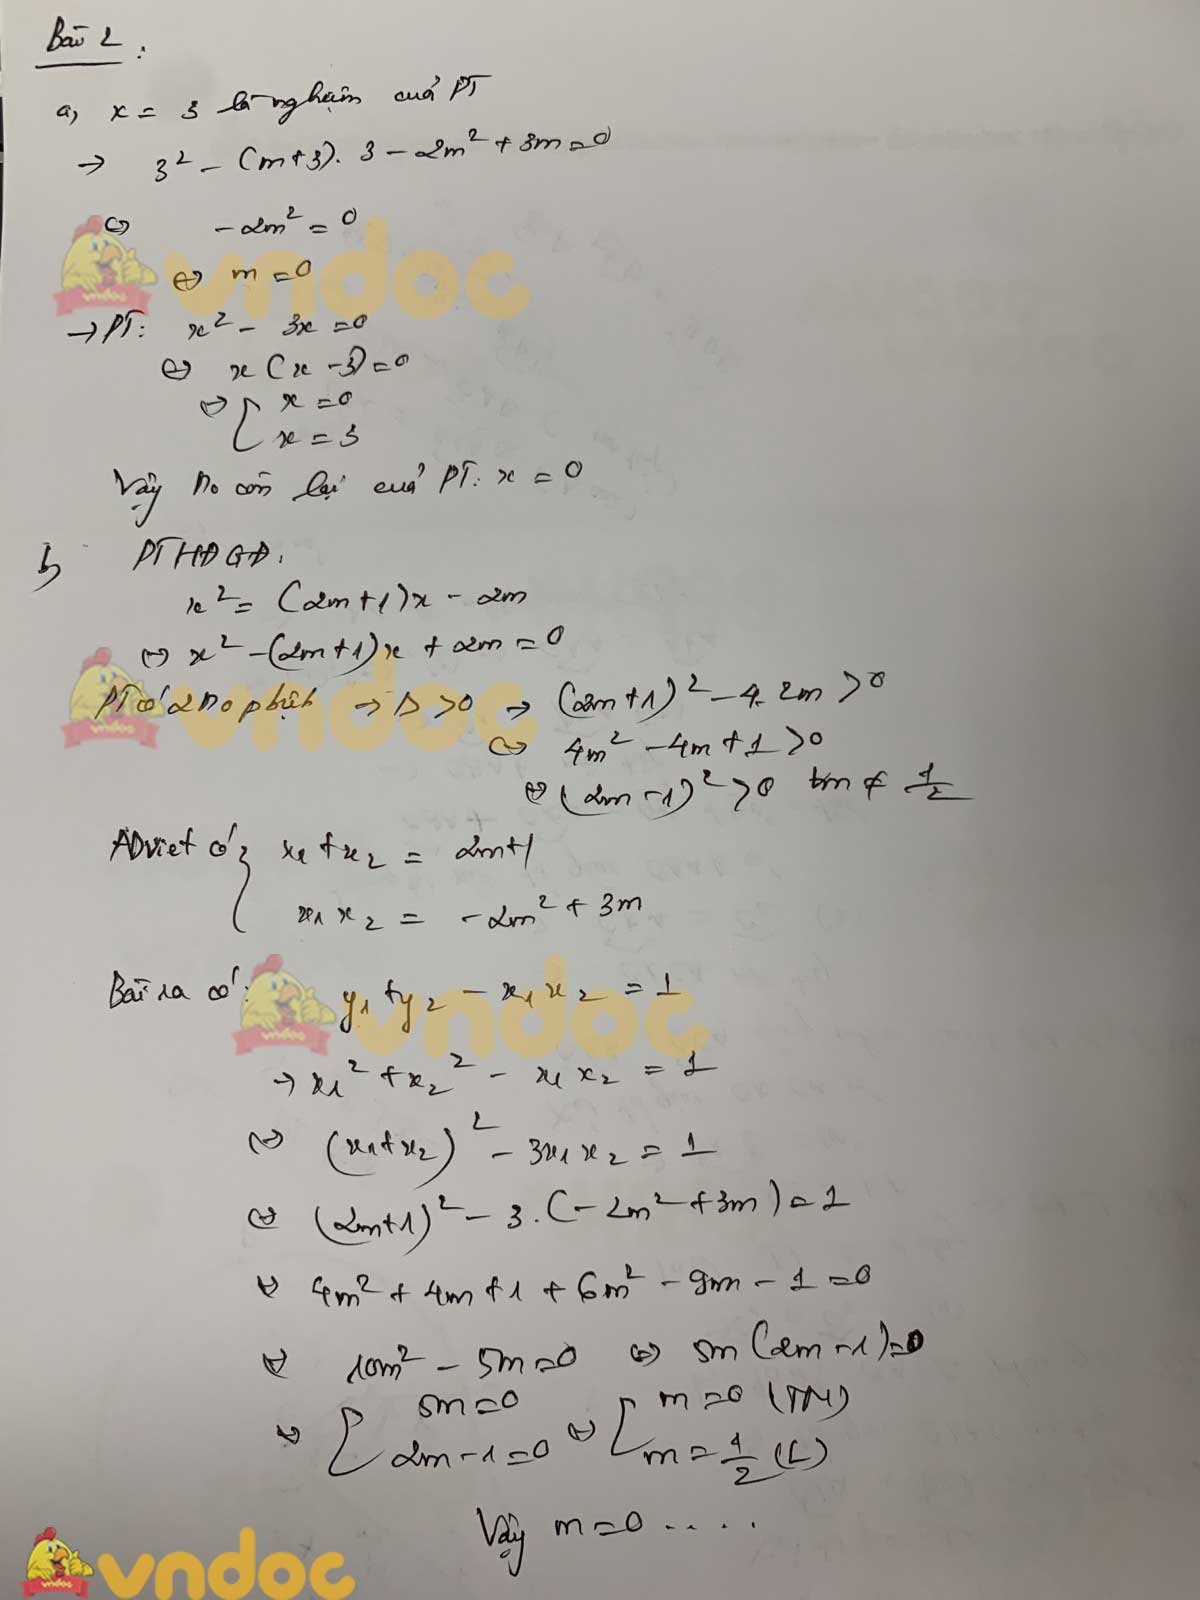 Bài 2 :
a, x = 3 là nghiệm của PT
→ 3² - (m+3). 3 - 2m² + 3m = 0
⇔ - 2m² = 0
⇔ m = 0
→ PT: x² - 3x = 0
⇔ x (x - 3) = 0
⇔ [ x = 0
x = 3
Vậy No còn lại của PT: x = 0
b, PTHĐGĐ:
x² = (2m+1)x - 2m
⇔ x² - (2m+1)x + 2m = 0
PT có 2 No pbiệt → Δ > 0 → (2m+1)² - 4. 2m > 0
⇔ 4m² - 4m + 1 > 0
⇔ (2m - 1)² > 0 m ≠ 1/2
AD viet có { x₁ + x₂ = 2m+1
x₁ x₂ = - 2m² + 3m
Bài ra có: y₁ + y₂ - x₁ x₂ = 1
→ x₁² + x₂² - x₁ x₂ = 1
⇔ (x₁+x₂)² - 3x₁ x₂ = 1
⇔ (2m+1)² - 3. (- 2m² + 3m) = 1
⇔ 4m² + 4m + 1 + 6m² - 9m - 1 = 0
⇔ 10m² - 5m = 0 ⇔ 5m (2m - 1) = 0
⇔ [ 5m = 0 ⇔ [ m = 0 (TM)
2m - 1 = 0 m = 1/2 (L)
Vậy m = 0 . . . . .
vndoc